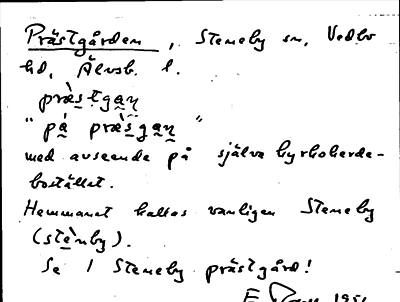 Prästgården, Steneby sn, Vedbo
hd, Älvsb. l.
præ̀stgaṇ
"på præ̀sgaṇ"
med avseende på själva kyrkoherde-
bostället.
Hemmanet kallas vanligen Steneby
(stènby).
Se / Steneby prästgård!
E